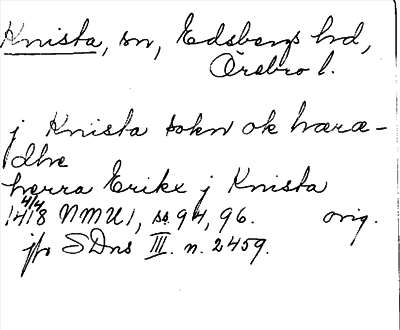 Knista, sn, Edsbergs hd,
Örebro l.
j Knista sokn ok hæræ-
dhe
herra Erike j Knista
1418 4/4 NMU 1, ss 94, 96. orig.
jfr SDns III. n. 2459.